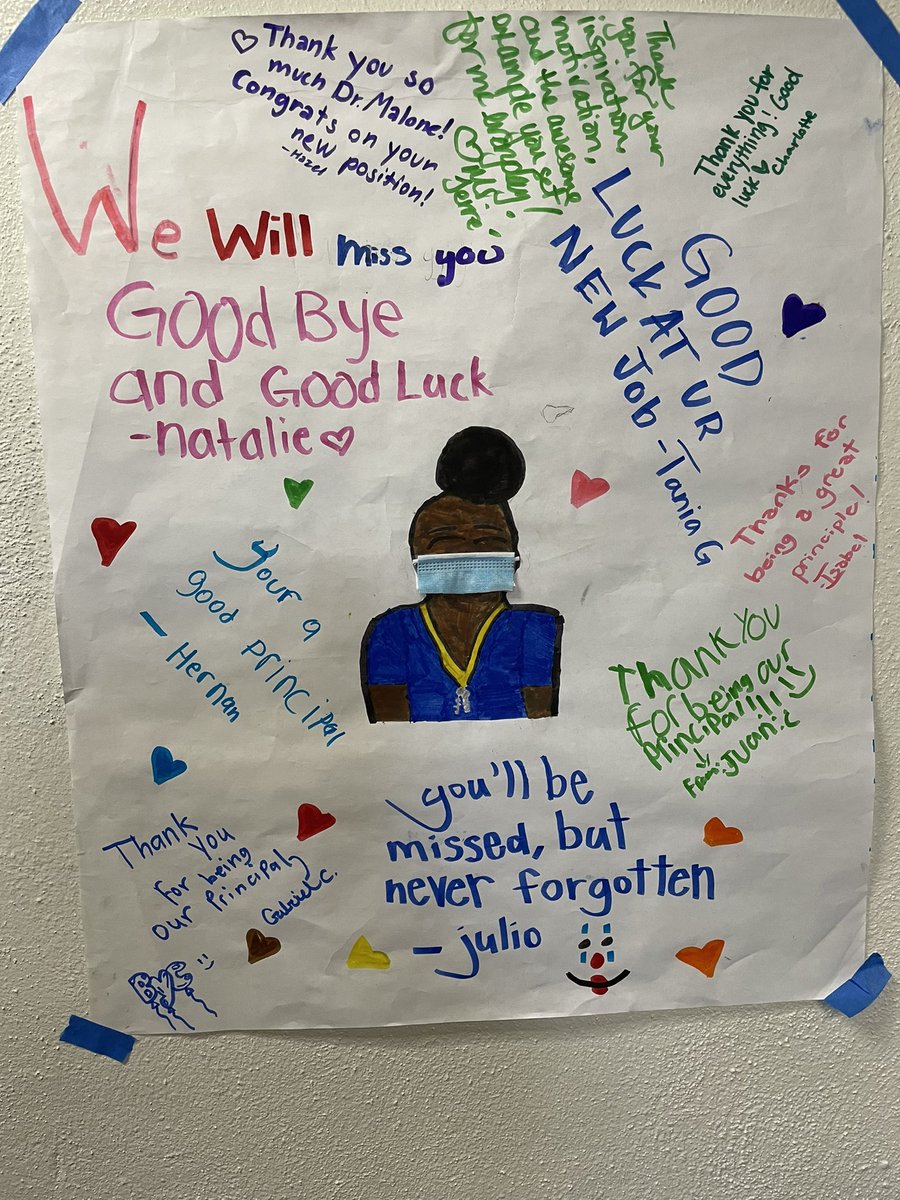 Thank you so
much Dr. Malone!
Congrats on your
new position!
-Hazel
Thank
you for your
inspiration,
motivation,
and the awesome
example you set
for me
Thank you for
everything! Good
luck
Charlotte
We Will miss you
Good Bye
and Good Luck
-natalie
GOOD
LUCK AT UR
NEW JOB -Tania G
Thanks for
being a great
principle!
-Isabel
Your a
good principal
- Hernan
Thank you
for being our
principal!!!!
From: Juan:c
Thank
you
for being
our Principal
Gabriel C.
BYE
you'll be
missed, but
never forgotten
- julio